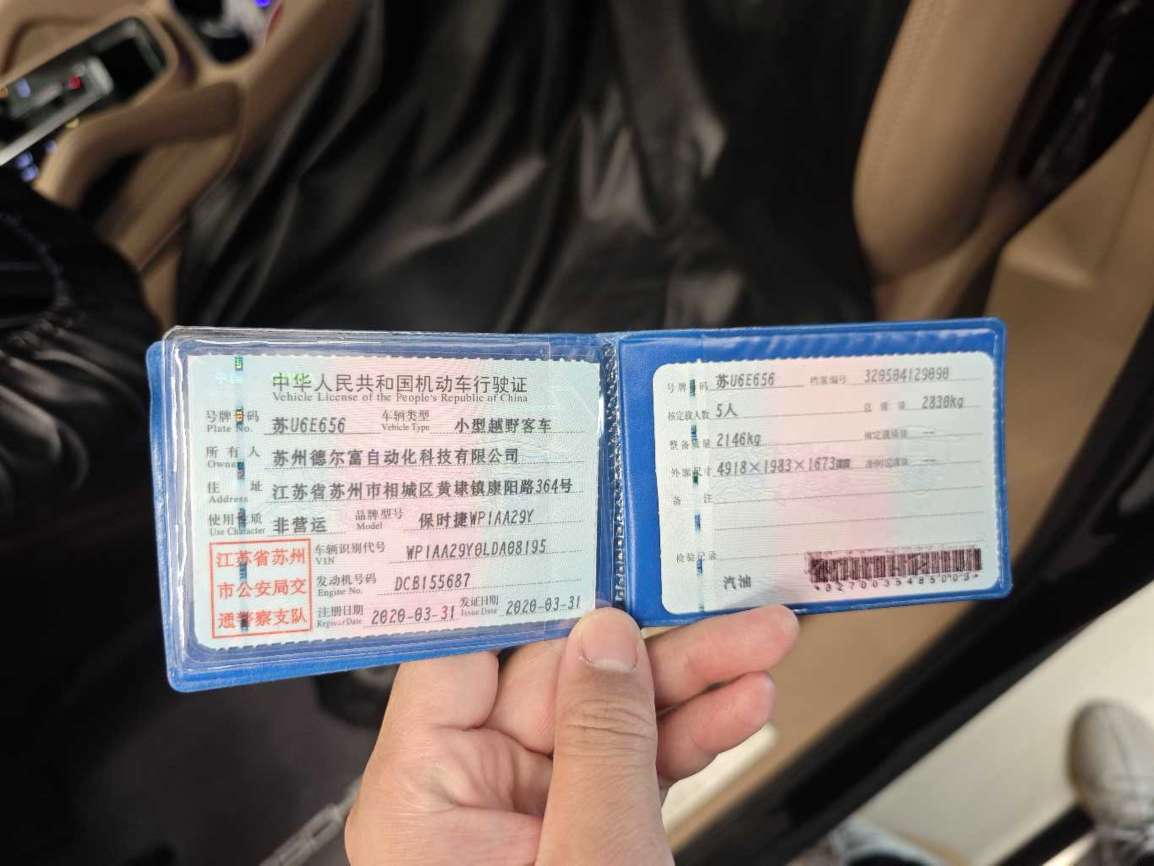 中华人民共和国机动车行驶证
Vehicle License of the People's Republic of China
号牌号码 苏U6E656 车辆类型 小型越野客车
Plate No. Vehicle Type
所有人 苏州德尔富自动化科技有限公司
Owner
住址 江苏省苏州市相城区黄埭镇康阳路364号
Address
使用性质 非营运 品牌型号 保时捷WP1AA29Y
Use Character Model
江苏省苏州
市公安局交
通警察支队
车辆识别代号 WP1AA29Y0LDA08195
VIN
发动机号码 DCB155687
Engine No.
注册日期 2020-03-31 发证日期 2020-03-31
Register Date Issue Date
号牌号码 苏U6E656 档案编号 320504129090
核定载人数 5人 总质量 2830kg
整备质量 2146kg 核定载质量 --
外廓尺寸 4918×1983×1673mm 准牵引总质量 --
备注
检验记录
汽油
*3270035485003*